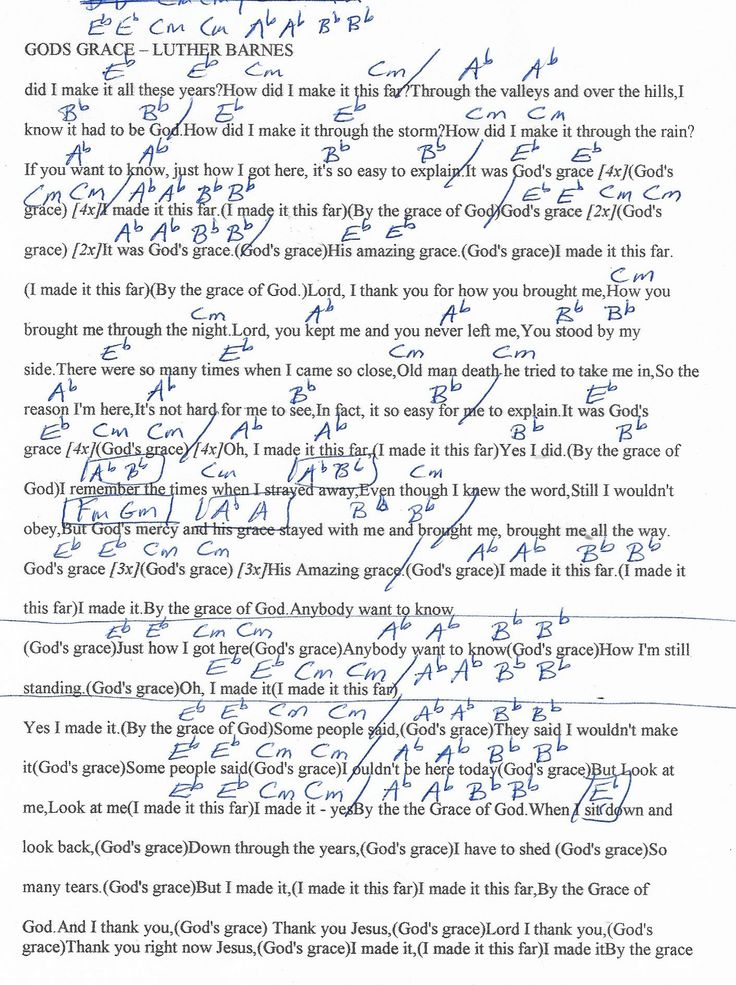 E♭ E♭ Cm Cm A♭ A♭ B♭ B♭
GODS GRACE – LUTHER BARNES
E♭ E♭ Cm Cm / A♭ A♭
did I make it all these years?How did I make it this far?Through the valleys and over the hills,I
B♭ B♭ / E♭ E♭ Cm Cm
know it had to be God.How did I make it through the storm?How did I make it through the rain?
A♭ A♭ B♭ B♭ / E♭ E♭
If you want to know, just how I got here, it's so easy to explain.It was God's grace [4x](God's
Cm Cm / A♭ A♭ B♭ B♭ / E♭ E♭ Cm Cm
grace) [4x]I made it this far.(I made it this far)(By the grace of God)God's grace [2x](God's
A♭ A♭ B♭ B♭ / E♭ E♭
grace) [2x]It was God's grace.(God's grace)His amazing grace.(God's grace)I made it this far.
Cm
(I made it this far)(By the grace of God.)Lord, I thank you for how you brought me,How you
Cm A♭ A♭ B♭ B♭
brought me through the night.Lord, you kept me and you never left me,You stood by my
E♭ E♭ Cm Cm
side.There were so many times when I came so close,Old man death he tried to take me in,So the
A♭ A♭ B♭ B♭ / E♭
reason I'm here,It's not hard for me to see,In fact, it so easy for me to explain.It was God's
E♭ Cm Cm / A♭ A♭ B♭ B♭
grace [4x](God's grace) [4x]Oh, I made it this far,(I made it this far)Yes I did.(By the grace of
A♭ B♭ Cm A♭ B♭ Cm
God)I remember the times when I strayed away,Even though I knew the word,Still I wouldn't
Fm Gm A♭ A B♭ B♭
obey,But God's mercy and his grace stayed with me and brought me, brought me all the way.
E♭ E♭ Cm Cm / A♭ A♭ B♭ B♭
God's grace [3x](God's grace) [3x]His Amazing grace.(God's grace)I made it this far.(I made it
this far)I made it.By the grace of God.Anybody want to know
E♭ E♭ Cm Cm A♭ A♭ B♭ B♭
(God's grace)Just how I got here(God's grace)Anybody want to know(God's grace)How I'm still
E♭ E♭ Cm Cm / A♭ A♭ B♭ B♭
standing.(God's grace)Oh, I made it(I made it this far),
E♭ E♭ Cm Cm / A♭ A♭ B♭ B♭
Yes I made it.(By the grace of God)Some people said,(God's grace)They said I wouldn't make
E♭ E♭ Cm Cm / A♭ A♭ B♭ B♭
it(God's grace)Some people said(God's grace)I ouldn't be here today(God's grace)But Look at
E♭ E♭ Cm Cm / A♭ A♭ B♭ B♭ / E♭
me,Look at me(I made it this far)I made it - yesBy the the Grace of God.When I sit down and
look back,(God's grace)Down through the years,(God's grace)I have to shed (God's grace)So
many tears.(God's grace)But I made it,(I made it this far)I made it this far,By the Grace of
God.And I thank you,(God's grace) Thank you Jesus,(God's grace)Lord I thank you,(God's
grace)Thank you right now Jesus,(God's grace)I made it,(I made it this far)I made itBy the grace